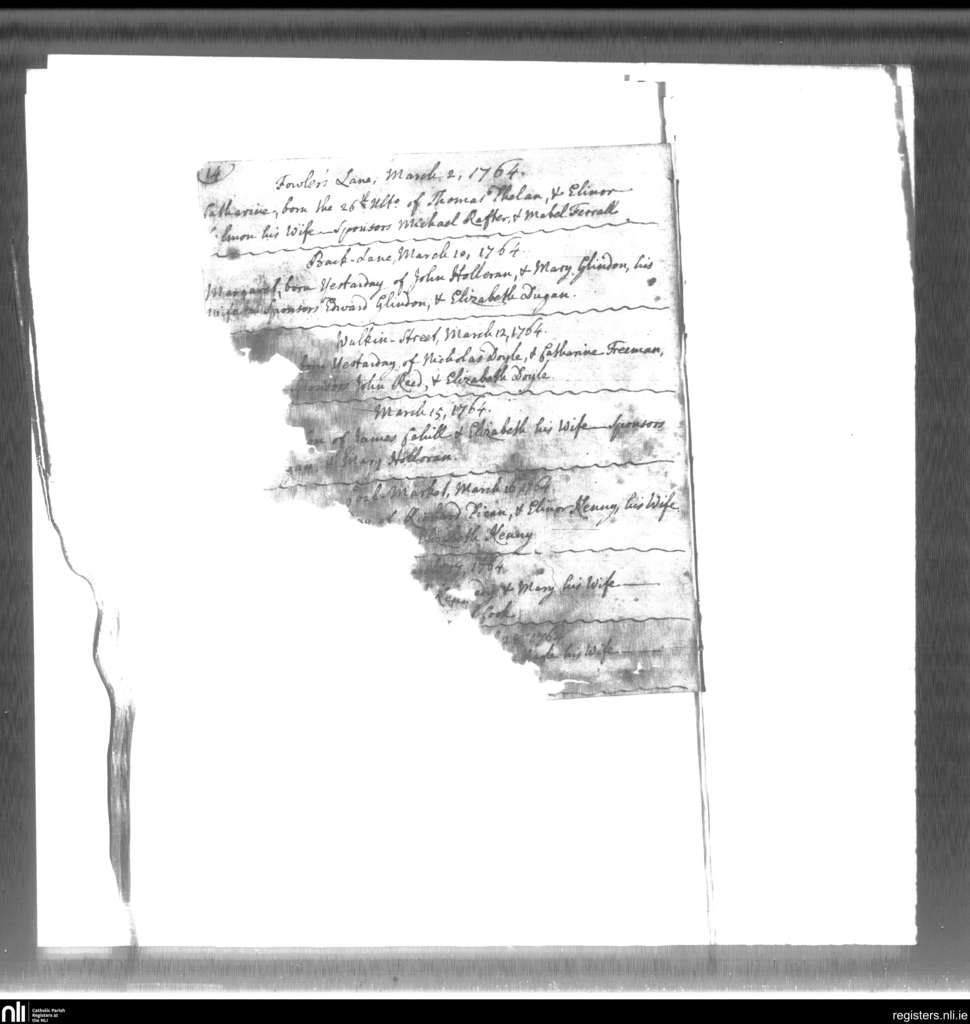 14
Fowler's Lane, March 2, 1764.
Catharine, born the 26th Ulto of Thomas Phelan, & Elinor
his Wife Sponsors Michael Rafter, & Mabel Ferrall
Back-Lane, March 10, 1764.
Margaret, born Yestarday of John Holleran, & Mary Glindon, his
wife Sponsors Edward Glindon, & Elizabeth Dugan.
Walkin-Street, March 12, 1764.
Yestarday of Nicholas Doyle, & Catharine Freeman,
John Reed, & Elizabeth Doyle
March 15, 1764.
of James Cahill & Elizabeth his Wife Sponsors
& Mary Holloran.
Market, March 16, 1764
Richard & Elinor Kenny, his Wife
Elizabeth Kenny
1764
& Mary his Wife
1764
his Wife
nli Catholic Parish
Registers at
the NLI
registers.nli.ie